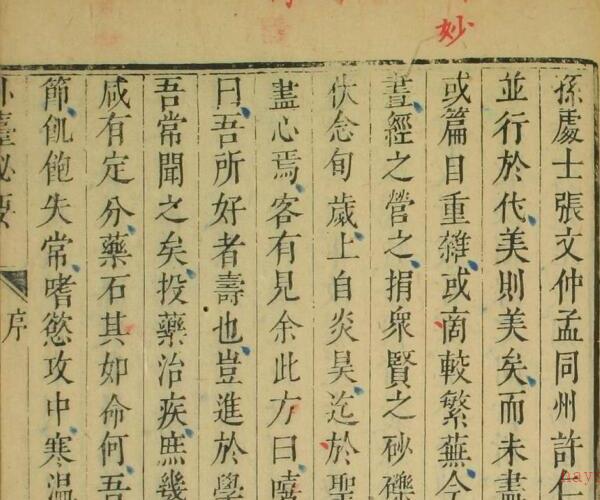 妙
孫處士張文仲孟同州許仁
並行於代美則美矣而未盡
或篇目重雜或商較繁蕪今
晝經之營之捐衆賢之砂礫
伏念旬歲上自炎昊迄於聖
盡心焉客有見余此方曰嘻
曰吾所好者壽也豈進於學
吾常聞之矣投藥治疾庶幾
咸有定分藥石其如命何吾
節飢飽失常嗜慾攻中寒温
外臺秘要
序